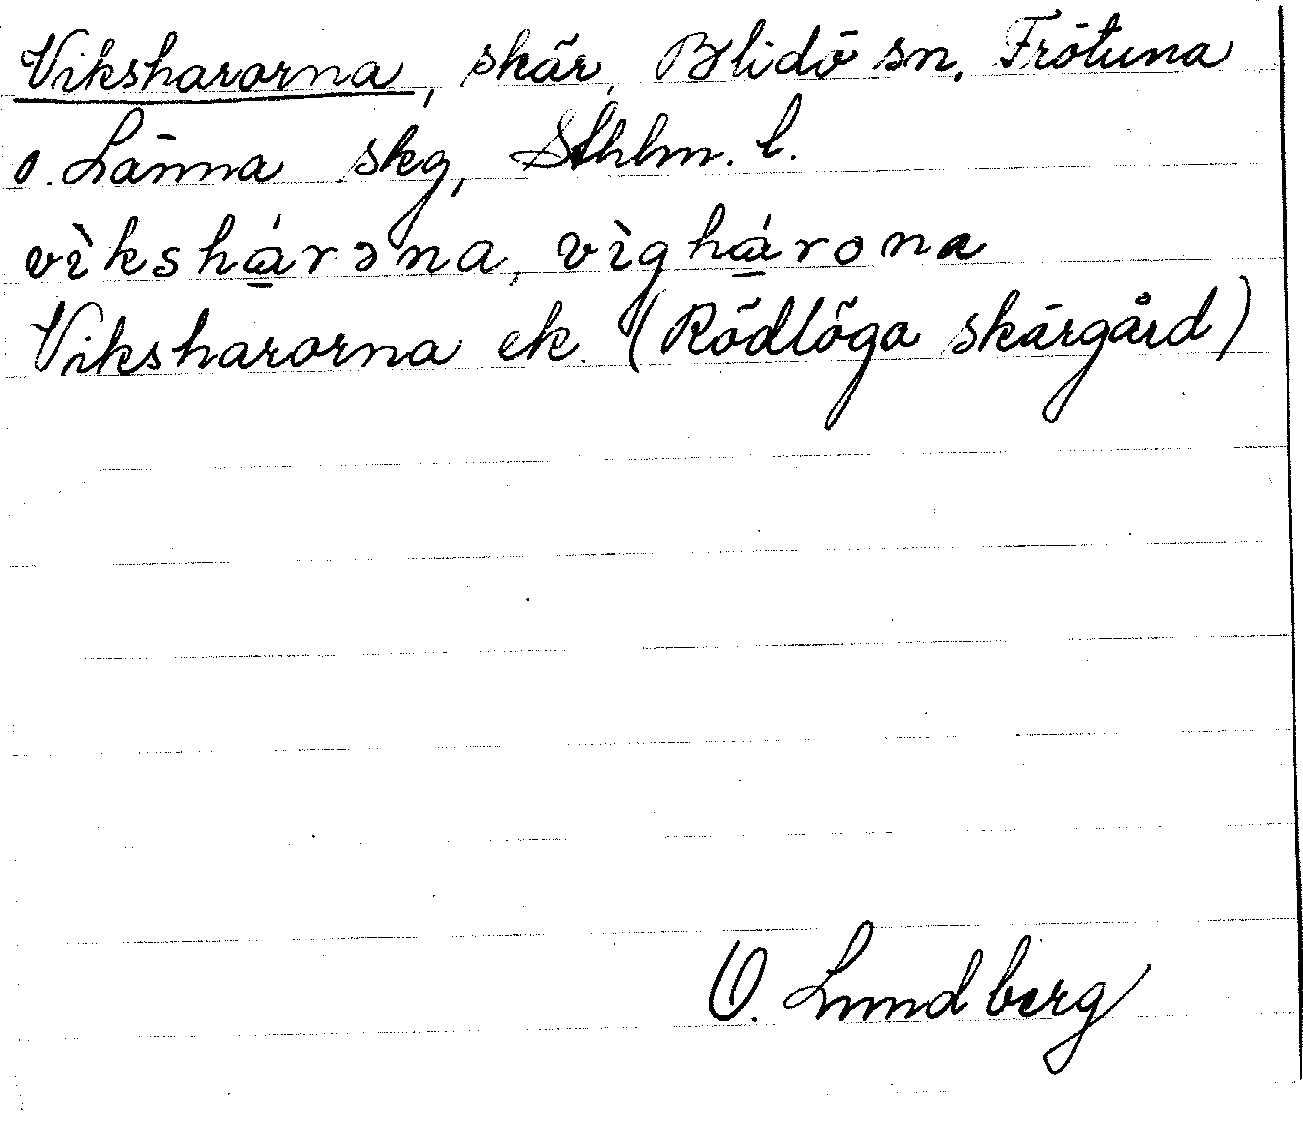 Viksharorna, skär, Blidö sn, Frötuna
o. Länna skg, Sthlm. l.
vìkshá̱rəna, vìghá̱rona
Viksharorna ek. (Rödlöga skärgård)
O. Lundberg